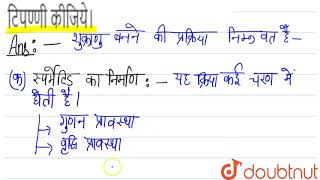 टिप्पणी कीजिये।
Ans: — शुक्राणु बनने की प्रक्रिया निम्न वत है -
(क) स्पर्मेटिड का निर्माण : — यह क्रिया कई चरण में
होती है।
→ गुणन प्रावस्था
→ वृद्धि प्रावस्था
doubtnut